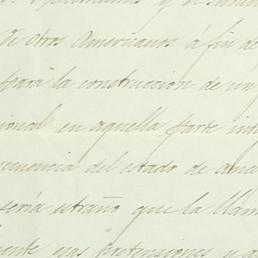 y el
de otros Americanos a fin de
para la construccion de un
cional en aquella parte in
del estado de
seria estraño que la llam
sus pretenciones y a